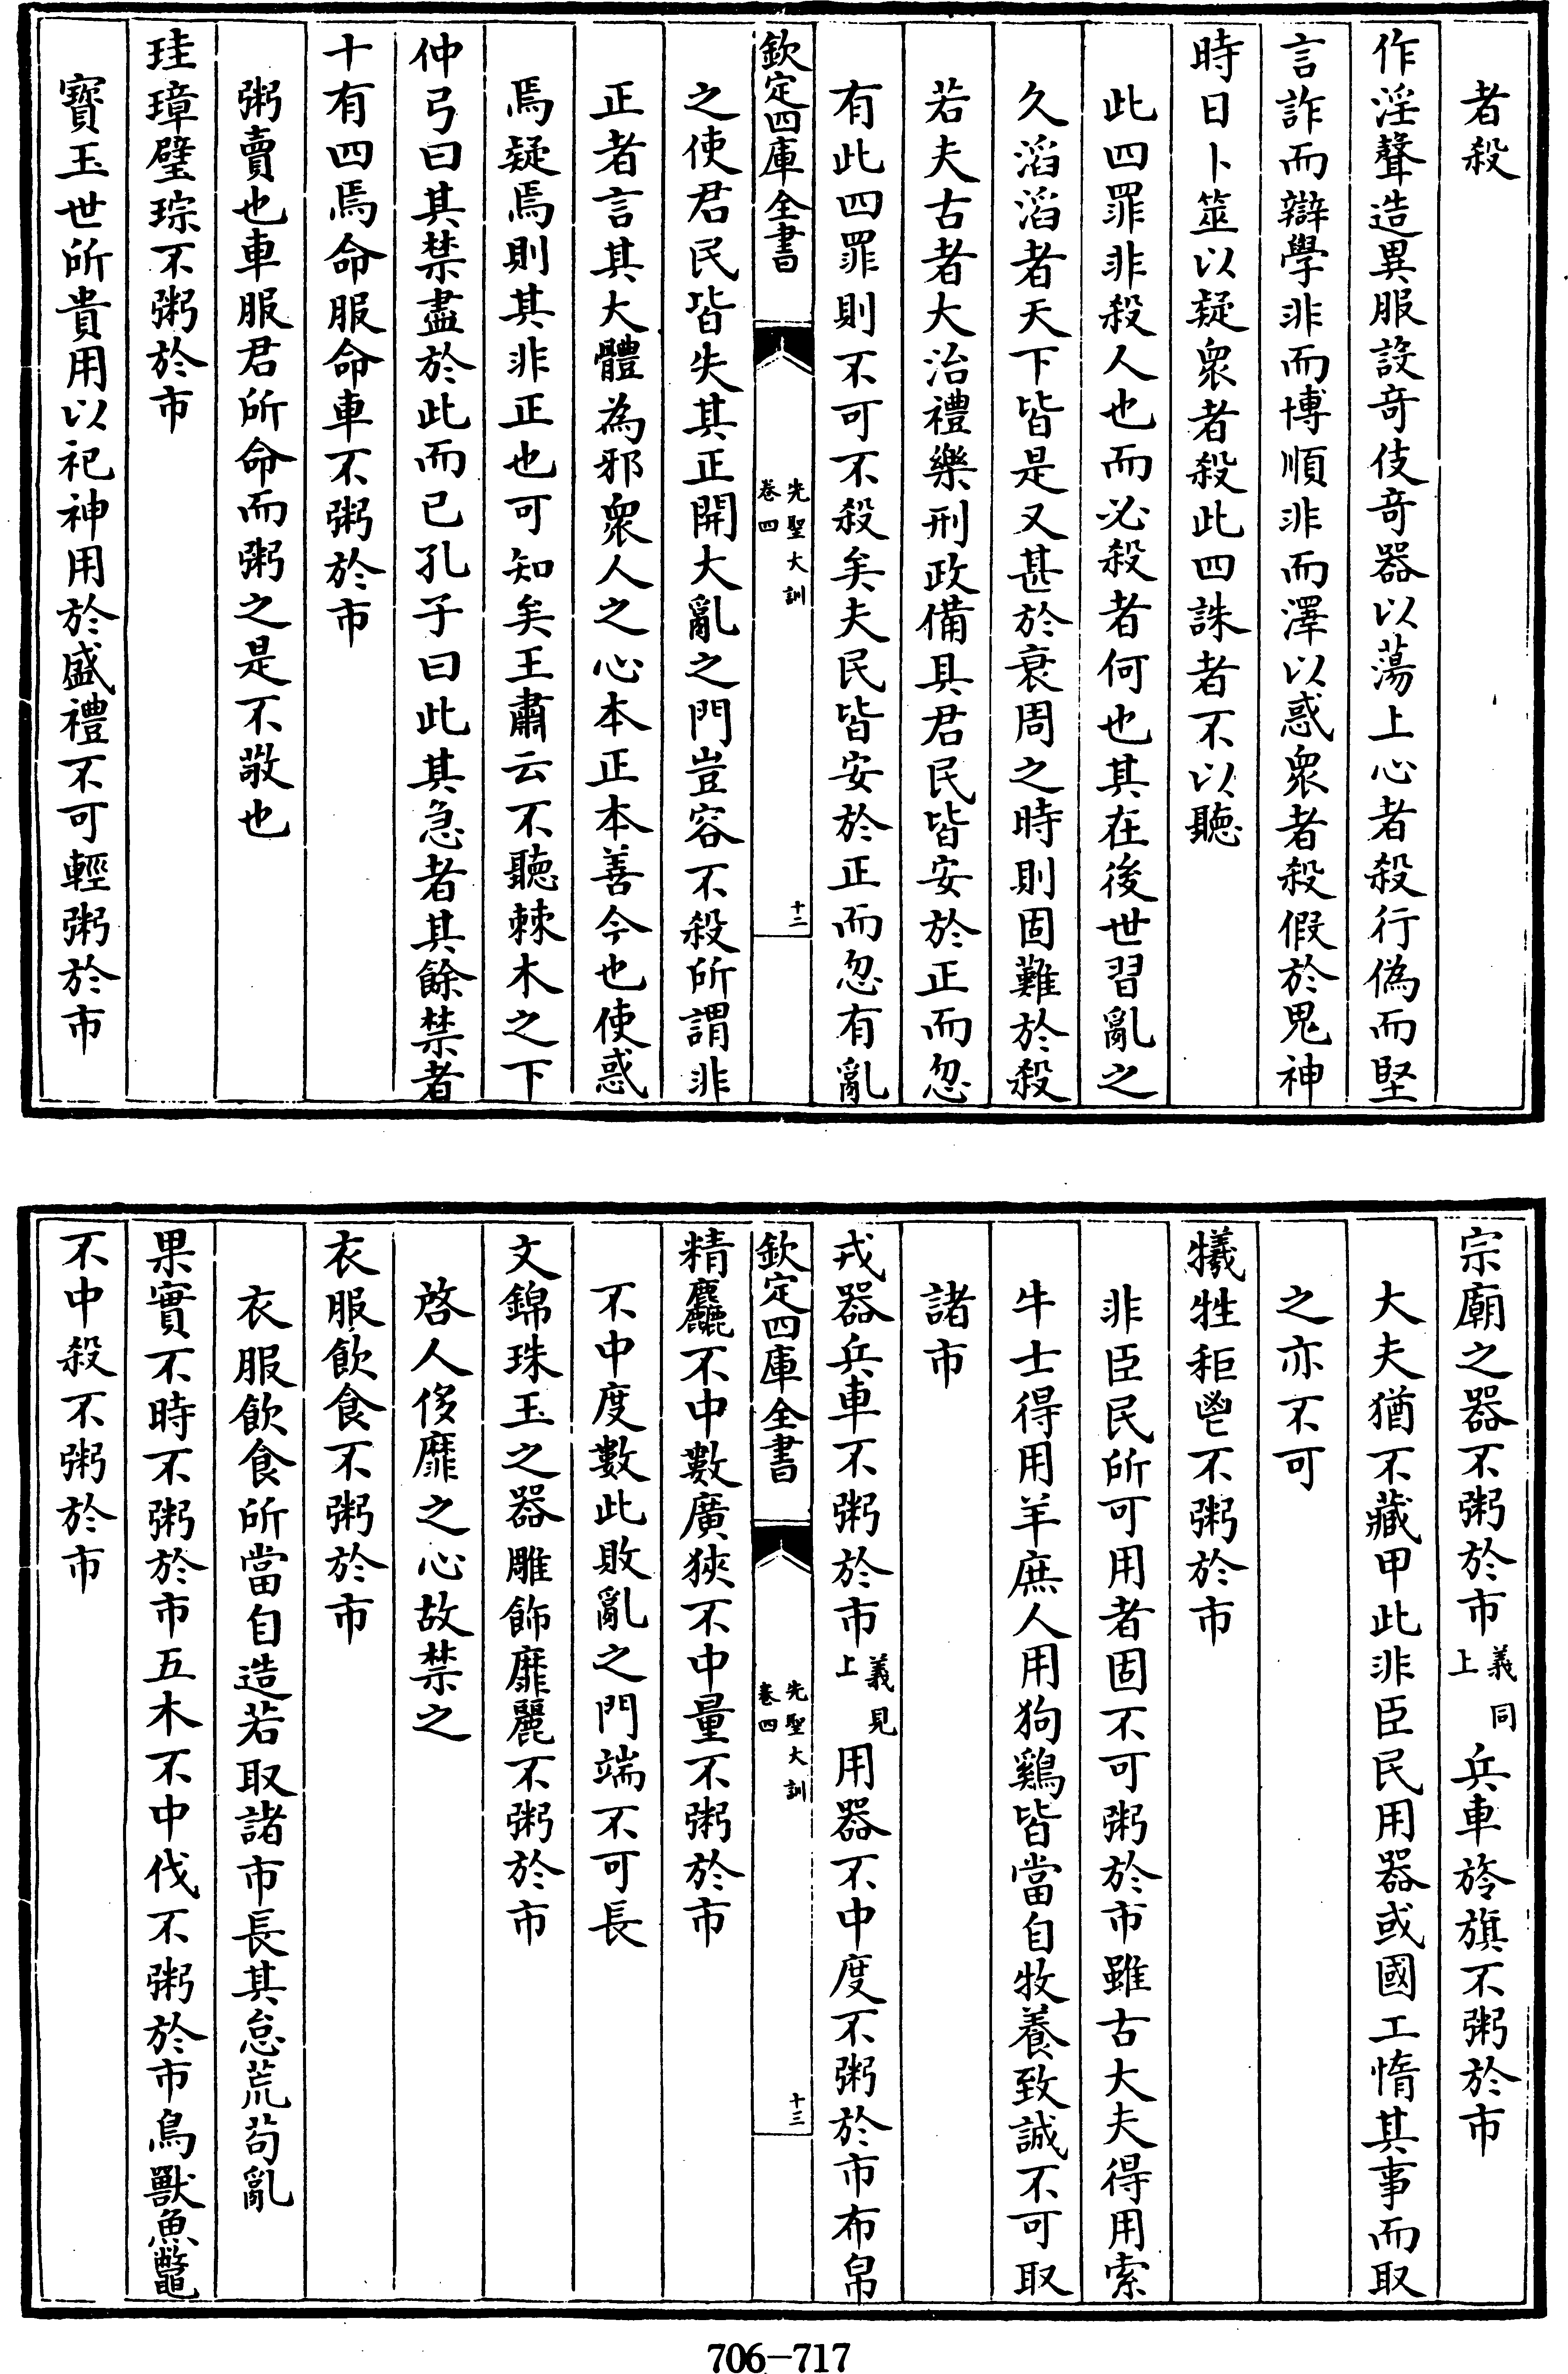 者殺
作淫聲造異服設奇伎奇器以蕩上心者殺行偽而堅
言詐而辯學非而博順非而澤以惑衆者殺假於鬼神
時日卜筮以疑衆者殺此四誅者不以聽
此四罪非殺人也而必殺者何也其在後世習亂之
久滔滔者天下皆是又甚於衰周之時則固難於殺
若夫古者大治禮樂刑政備具君民皆安於正而忽
有此四罪則不可不殺矣夫民皆安於正而忽有亂
欽定四庫全書
先聖大訓
卷四
十二
之使君民皆失其正開大亂之門豈容不殺所謂非
正者言其大體為邪衆人之心本正本善今也使惑
焉疑焉則其非正也可知矣王肅云不聽棘木之下
仲弓曰其禁盡於此而已孔子曰此其急者其餘禁者
十有四焉命服命車不粥於市
粥賣也車服君所命而粥之是不敬也
珪璋璧琮不粥於市
寳玉世所貴用以祀神用於盛禮不可輕粥於市
宗廟之器不粥於市義同上兵車旍旗不粥於市
大夫猶不藏甲此非臣民用器或國工惰其事而取
之亦不可
犧牲秬鬯不粥於市
非臣民所可用者固不可粥於市雖古大夫得用索
牛士得用羊庶人用狗鷄皆當自牧養致誠不可取
諸市
戎器兵車不粥於市義見上用器不中度不粥於市布帛
欽定四庫全書
先聖大訓
卷四
十三
精麤不中數廣狹不中量不粥於市
不中度數此敗亂之門端不可長
文錦珠玉之器雕飾靡麗不粥於市
啓人侈靡之心故禁之
衣服飲食不粥於市
衣服飲食所當自造若取諸市長其怠荒苟亂
果實不時不粥於市五木不中伐不粥於市鳥獸魚鼈
不中殺不粥於市
706-717